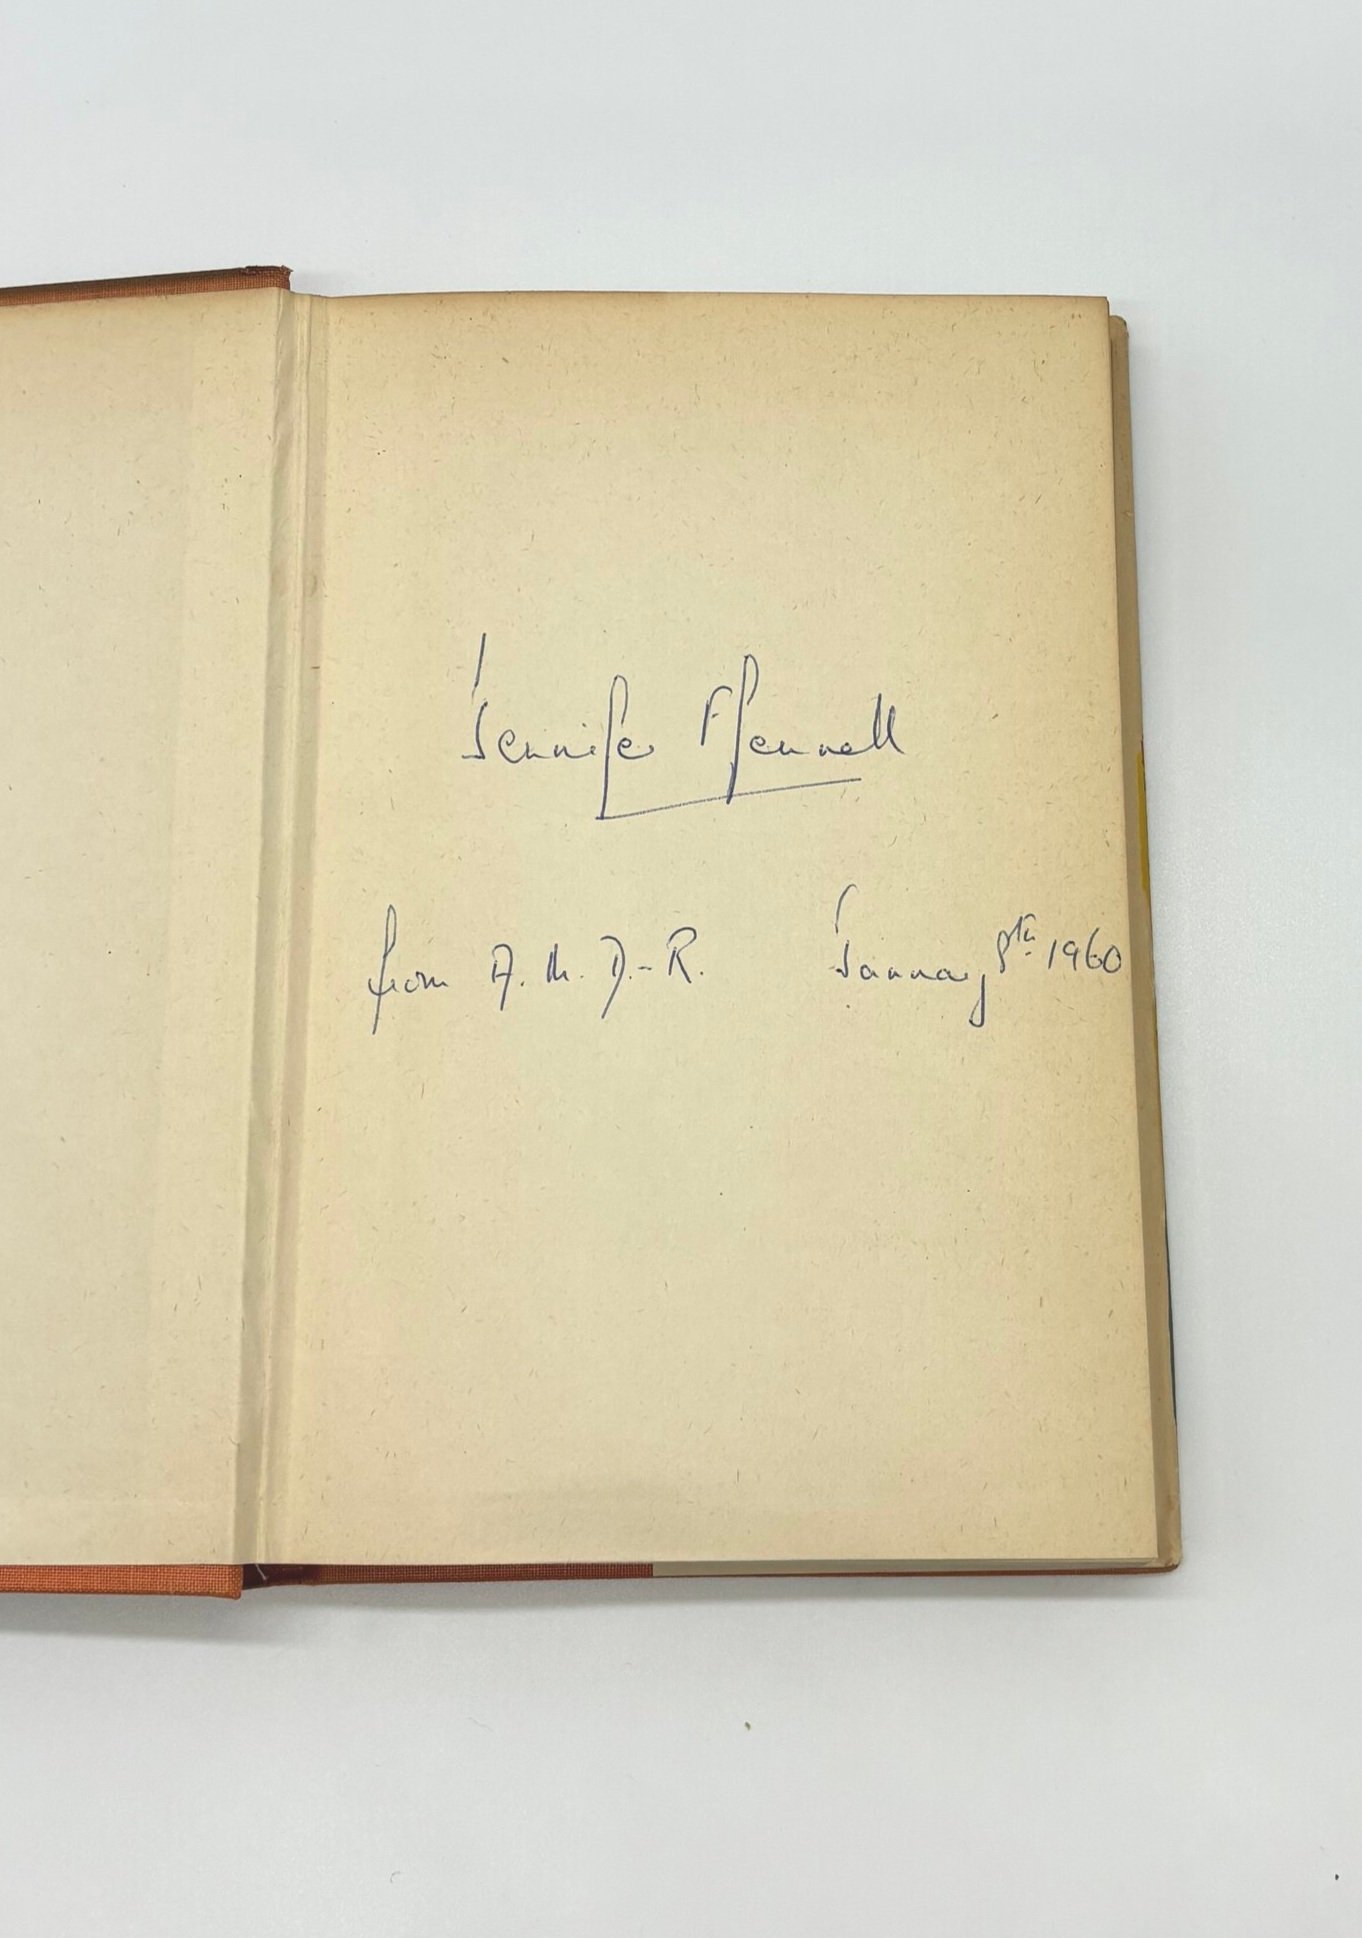 Jennifer Ffennell
from A. M. D.-R. January 8th 1960